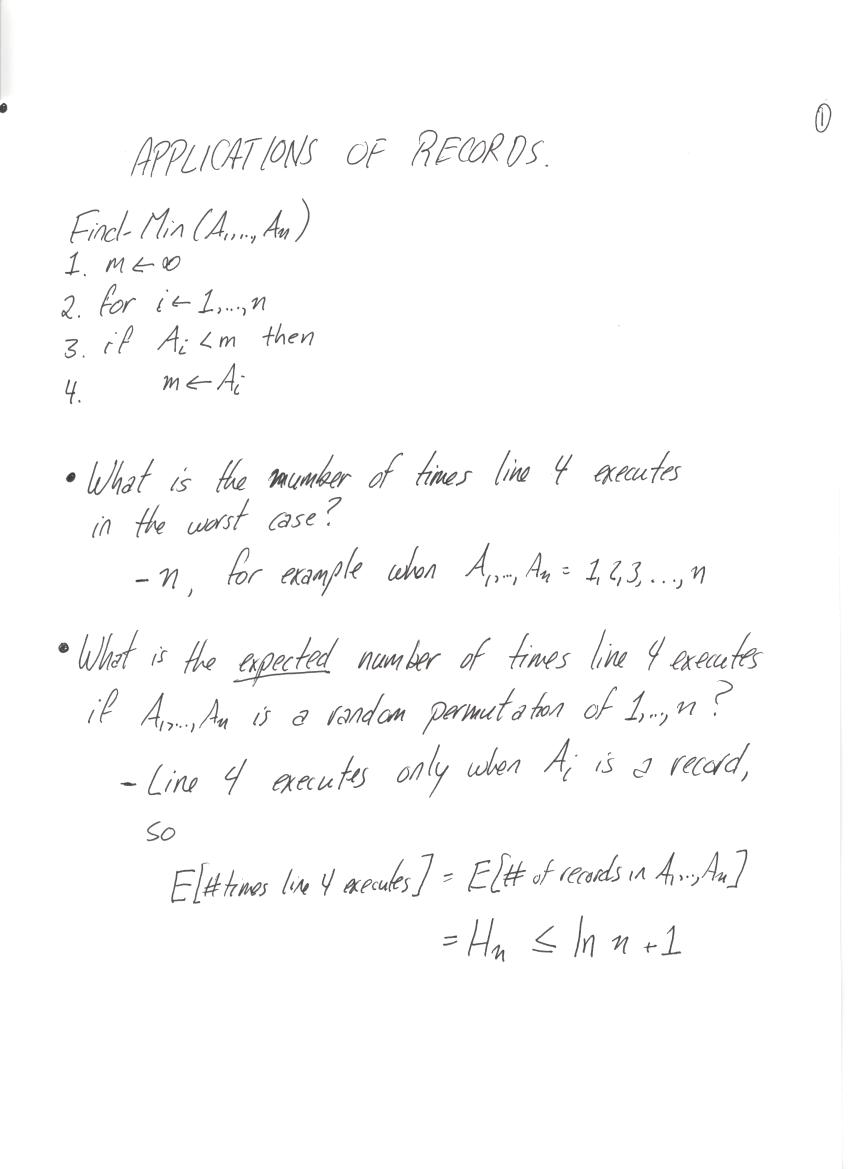 ①
APPLICATIONS OF RECORDS.
Find-Min (A₁,...,Aₙ)
1. m ← ∞
2. for i ← 1,...,n
3. if Aᵢ < m then
4. m ← Aᵢ
• What is the number of times line 4 executes
in the worst case?
- n, for example when A₁,...,Aₙ = 1,2,3,...,n
• What is the expected number of times line 4 executes
if A₁,...,Aₙ is a random permutation of 1,..,n?
- Line 4 executes only when Aᵢ is a record,
so
E[#times line 4 executes] = E[# of records in A₁,..,Aₙ]
= Hₙ ≤ ln n + 1